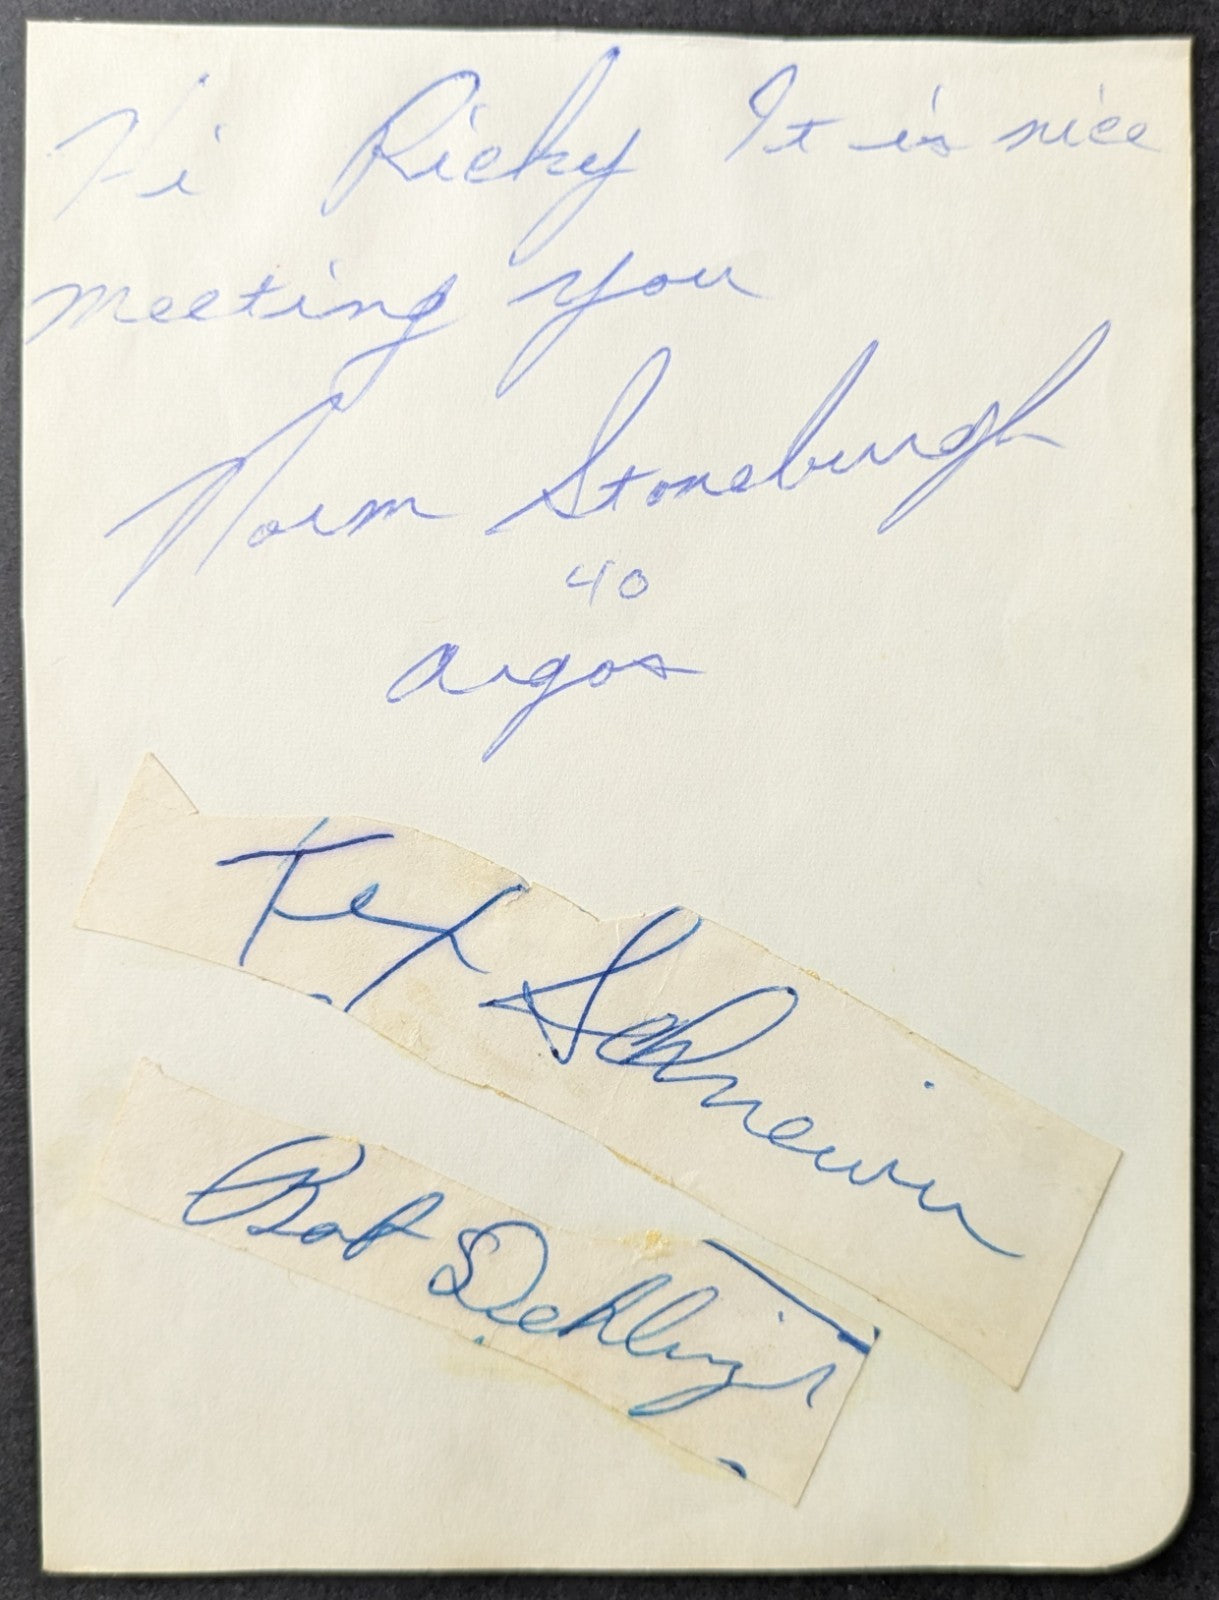 Hi Ricky It is nice
meeting you
Norm Stoneburgh
40
Argos
Tex Schriewer
Bob Dehlinger